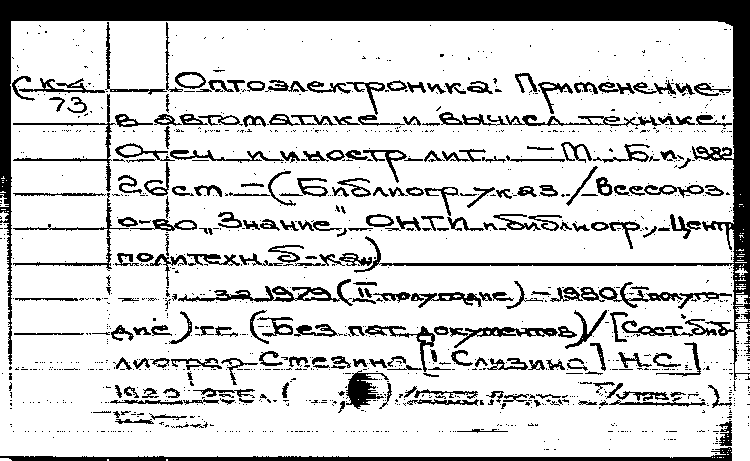 Ск-4
73
Оптоэлектроника: Применение
в автоматике и вычисл технике:
Отеч. и иностр лит... – М.: Б.и., 1982
26 ст. – (Библиогр указ./Всесоюз.
о-во „Знание", ОНТИ п. библиогр., Центр
политехн. б-ка)
за 1979 (II полугодие) – 1980 (I полуго-
дие) гг. (Без пат. документов)/[Сост. биб-
лиограф Стезина [! Слизина] Н.С.].